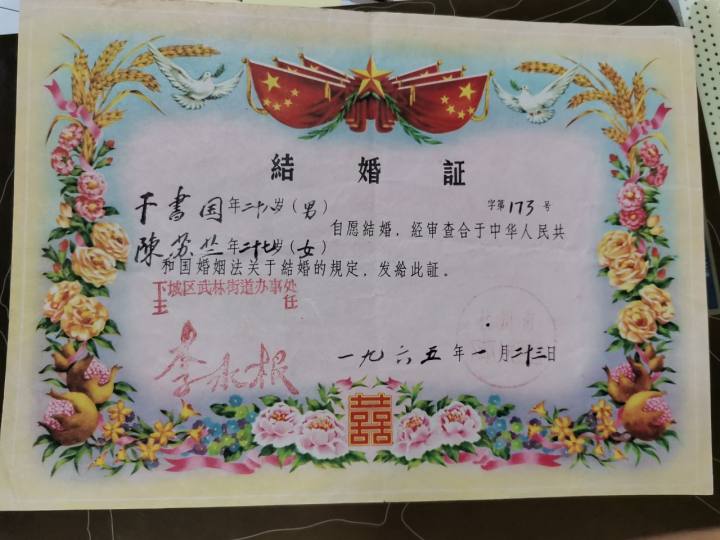 結婚証
字第173号
干書国年二十八岁(男)
陳蘇蘭年二十七岁(女)
自愿結婚,経审查合于中华人民共
和国婚姻法关于結婚的規定,发給此証。
下城区武林街道办事处
主任
李水根
一九六五年一月二十三日
囍